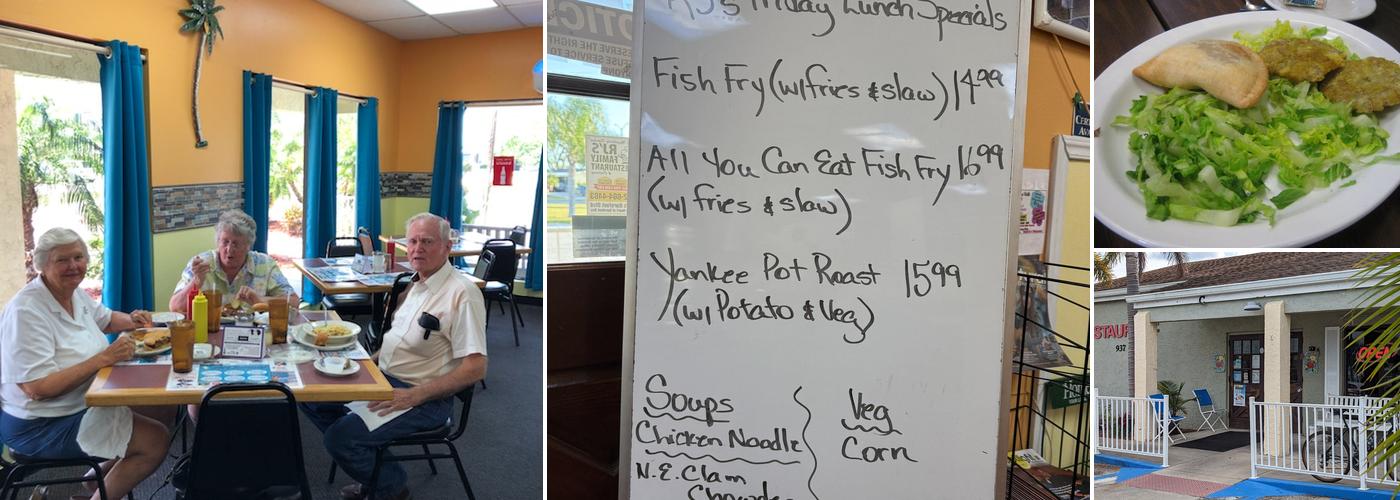 RJ's Friday Lunch Specials
Fish Fry (w/fries & slaw) 14.99
All You Can Eat Fish Fry 16.99
(w/ fries & slaw)
Yankee Pot Roast 15.99
(w/ Potato & Veg)
Soups
Chicken Noodle
N.E. Clam
Chowder
Veg
Corn
NOTICE
RESERVE THE RIGHT
REFUSE SERVICE TO
ANYONE
RJ'S
FAMILY
RESTAURANT
STAUR
937
OPEN